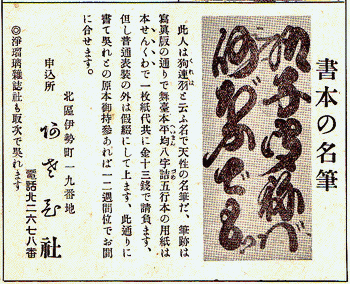 書本の名筆
此人は狗連羽と云ふ名で天性の名筆だ、筆跡は
寫眞版の通りで舞臺本平均八字詰五行本の用紙は
本せんくわで一枚紙代共に金十三錢で請負ます、
但し普通表裝の外は假綴にして上ます、此通りに
書て呉れとの原本御持參あれば一二週間位でお間
に合せます。
北區伊勢町一九番地
申込所 社
電話北二六七八番
◎淨瑠璃雜誌社も取次で呉れます